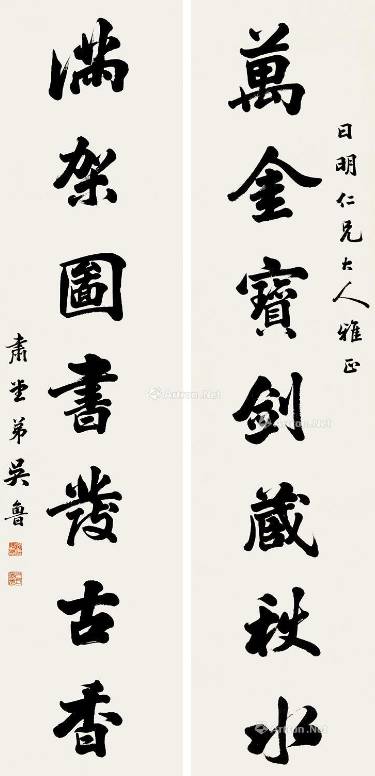 日明仁兄大人雅正
萬金寶劍藏秋水
滿架圖書發古香
肅堂弟吳魯
Artron.Net
Artron.Net
Artron.Net
Artron.Net